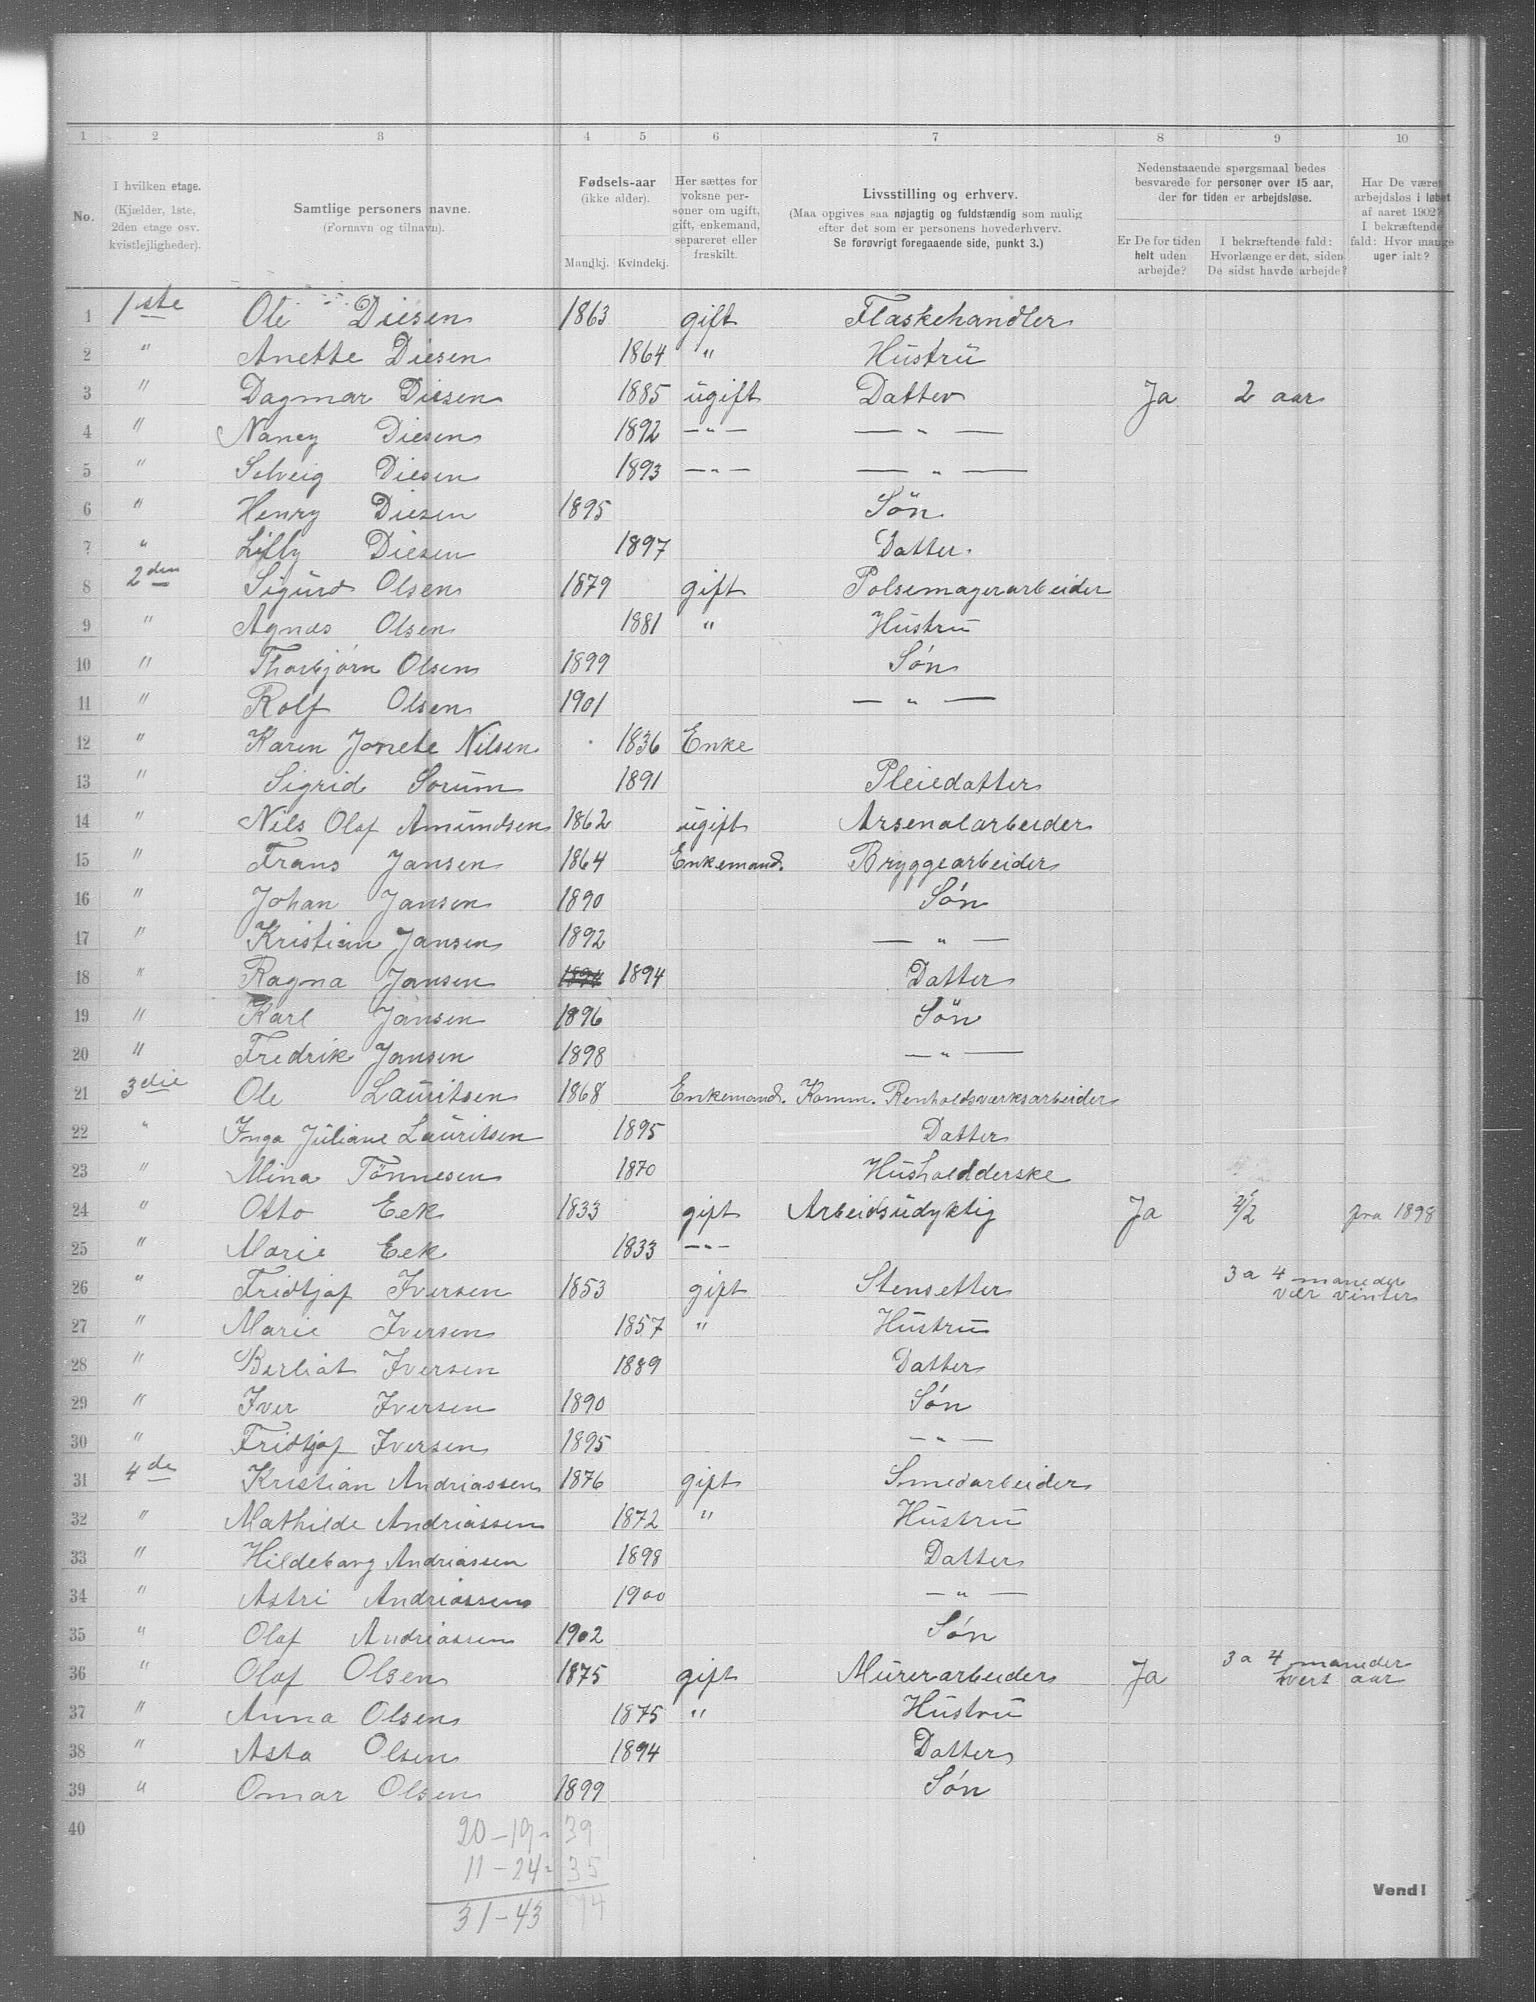 1 2 3 4 5 6 7 8 9 10
No.
I hvilken etage.
(Kjælder, 1ste,
2den etage osv.
kvistlejligheder).
Samtlige personers navne.
(Fornavn og tilnavn).
Fødsels-aar
(ikke alder).
Mandkj. Kvindekj.
Her sættes for
voksne per-
soner om ugift,
gift, enkemand,
separeret eller
fraskilt.
Livsstilling og erhverv.
(Maa opgives saa nøjagtig og fuldstændig som mulig
efter det som er personens hovederhverv.
Se forøvrigt foregaaende side, punkt 3.)
Nedenstaaende spørgsmaal bedes
besvarede for personer over 15 aar,
der for tiden er arbejdsløse.
Er De for tiden
helt uden
arbejde?
I bekræftende fald:
Hvorlænge er det, siden
De sidst havde arbejde?
Har De været
arbejdsløs i løbet
af aaret 1902?
I bekræftende
fald: Hvor mange
uger ialt?
1 1ste Ole Diesen 1863 gift Flaskehandler
2 " Anette Diesen 1864 " Hustru
3 " Dagmar Diesen 1885 ugift Datter Ja 2 aar
4 " Nancy Diesen 1892 —"— — " —
5 " Solveig Diesen 1893 —"— — " —
6 " Henry Diesen 1895 Søn
7 " Lilly Diesen 1897 Datter.
8 2den Sigurd Olsen 1879 gift Polsemagerarbeider
9 " Agnes Olsen 1881 " Hustru
10 " Thorbjørn Olsen 1899 Søn
11 " Rolf Olsen 1901 — " —
12 " Karen Jonete Nilsen 1836 Enke
13 " Sigrid Sorum 1891 Pleiedatter
14 " Nils Olaf Amundsen 1862 ugift Arsenalarbeider
15 " Frans Jansen 1864 Enkemand. Bryggearbeider
16 " Johan Jansen 1890 Søn
17 " Kristian Jansen 1892 — " —
18 " Ragna Jansen 1894 1894 Datter
19 " Karl Jansen 1896 Søn
20 " Fredrik Jansen 1898 — " —
21 3die Ole Lauritsen 1868 Enkemand. Komm. Renholdsværksarbeider
22 " Inga Juliane Lauritsen 1895 Datter
23 " Mina Tønnesen 1870 Husholdderske
24 " Otto Eek 1833 gift Arbeidsudyktig Ja fra 1898
25 " Marie Eek 1833 —"—
26 " Fridtjof Iversen 1853 gift Stensetter 3 a 4 maneder
vær vinter
27 " Marie Iversen 1857 " Hustru
28 " Berliat Iversen 1889 Datter
29 " Iver Iversen 1890 Søn
30 " Fridtjof Iversen 1895 — " —
31 4de Kristian Andriassen 1876 gift Smedarbeider
32 " Mathilde Andriassen 1872 " Hustru
33 " Hildeborg Andriassen 1898 Datter
34 " Astri Andriassen 1900 — " —
35 " Olaf Andriassen 1902 Søn
36 " Olaf Olsen 1875 gift Murerarbeider Ja 3 a 4 maneder
hvert aar
37 " Anna Olsen 1875 " Hustru
38 " Asta Olsen 1894 Datter
39 " Omar Olsen 1899 Søn
40
20 - 19 = 39
11 - 24 = 35
31 - 43 74
Vend!